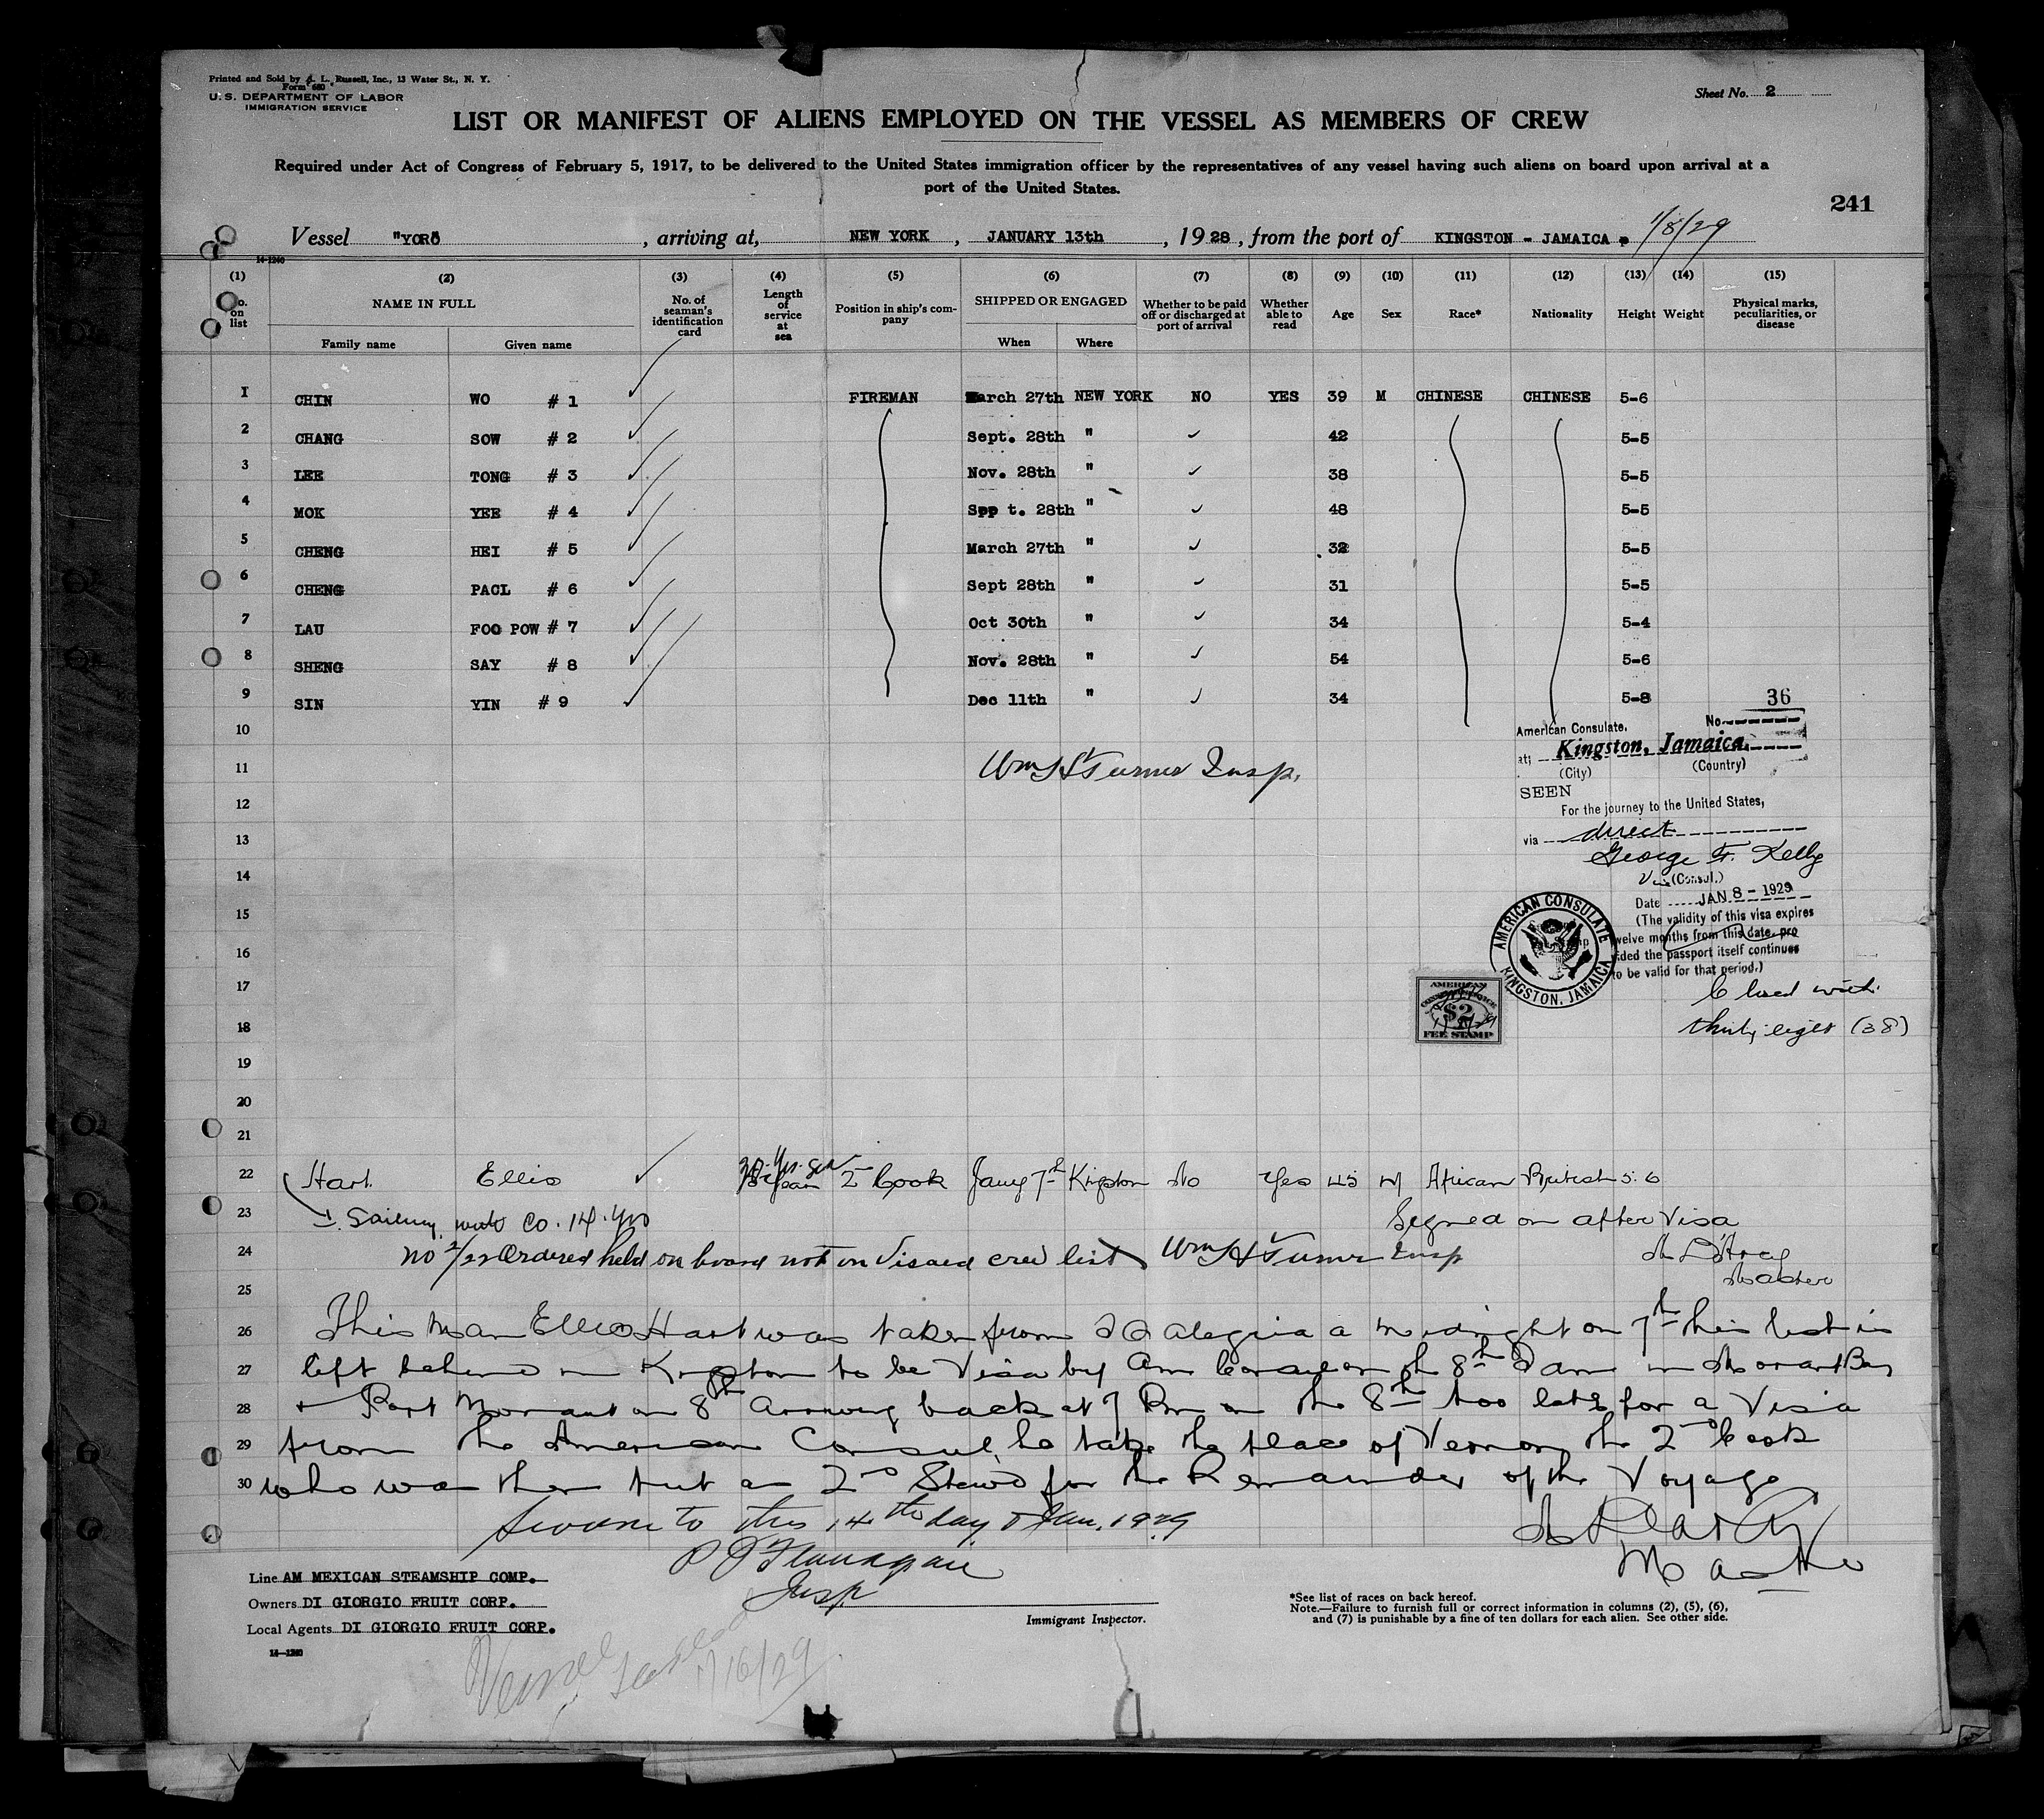 Printed and Sold by A. L. Russell, Inc., 13 Water St., N. Y.
Form 680
U. S. DEPARTMENT OF LABOR
IMMIGRATION SERVICE
Sheet No. 2
LIST OR MANIFEST OF ALIENS EMPLOYED ON THE VESSEL AS MEMBERS OF CREW
Required under Act of Congress of February 5, 1917, to be delivered to the United States immigration officer by the representatives of any vessel having such aliens on board upon arrival at a
port of the United States.
241
Vessel "YORO" , arriving at, NEW YORK , JANUARY 13th , 19 28 , from the port of KINGSTON - JAMAICA 1/8/29
14-1240
(1) (2) (3) (4) (5) (6) (7) (8) (9) (10) (11) (12) (13) (14) (15)
No. on list NAME IN FULL Family name Given name No. of seaman's identification card Length of service at sea Position in ship's company SHIPPED OR ENGAGED When Where Whether to be paid off or discharged at port of arrival Whether able to read Age Sex Race* Nationality Height Weight Physical marks, peculiarities, or disease
1 CHIN WO # 1 ✓ FIREMAN March 27th NEW YORK NO YES 39 M CHINESE CHINESE 5-6
2 CHANG SOW # 2 ✓ Sept. 28th " ✓ 42 5-5
3 LEE TONG # 3 ✓ Nov. 28th " ✓ 38 5-5
4 MOK YEE # 4 ✓ Spp t. 28th " ✓ 48 5-5
5 CHENG HEI # 5 ✓ March 27th " ✓ 32 5-5
6 CHENG PACL # 6 ✓ Sept 28th " ✓ 31 5-5
7 LAU FOO POW # 7 ✓ Oct 30th " ✓ 34 5-4
8 SHENG SAY # 8 ✓ Nov. 28th " ✓ 54 5-6
9 SIN YIN # 9 ✓ Dec 11th " ✓ 34 5-8
10
11 Wm H Turner Insp.
12
13
14
15
16
17
18
19
20
21
No 36
American Consulate,
at; Kingston, Jamaica.
(City) (Country)
SEEN
For the journey to the United States,
via direct
George F. Kelly
Vice (Consul.)
Date JAN 8 - 1929
(The validity of this visa expires
twelve months from this date, pro
vided the passport itself continues
to be valid for that period.)
AMERICAN CONSULATE
KINGSTON, JAMAICA
AMERICAN
$2
FEE STAMP
Closed with
thirty eight (38)
22 Hart Ellis ✓ 2nd Cook Jany 7th Kingston No Yes 45 M African British 5.6
23 Sailing with Co. 14. yrs Signed on after Visa
24 no 1/22 Ordered held on board not on Visaed crew list Wm H Turner Insp
Master
25
26 This Man Ellis Hart was taken from SS Alegria a midnight on 7th this list is
27 left behind in Kingston to be Visa by Am Consul on the 8th I am in Morant Bay
28 + Port Morant on 8th Arriving back at 7 Pm on the 8th too late for a Visa
29 from the American Consul, to take the place of Vernon, the 2nd Cook
30 who was then put as 2nd Stewd for the Remainder of the Voyage
Sworn to this 14th day of Jan. 1929
P J Flanagan
Insp
Master
Line AM MEXICAN STEAMSHIP COMP.
Owners DI GIORGIO FRUIT CORP.
Local Agents DI GIORGIO FRUIT CORP.
14-1240
Immigrant Inspector.
*See list of races on back hereof.
Note.—Failure to furnish full or correct information in columns (2), (5), (6),
and (7) is punishable by a fine of ten dollars for each alien. See other side.
1/16/29